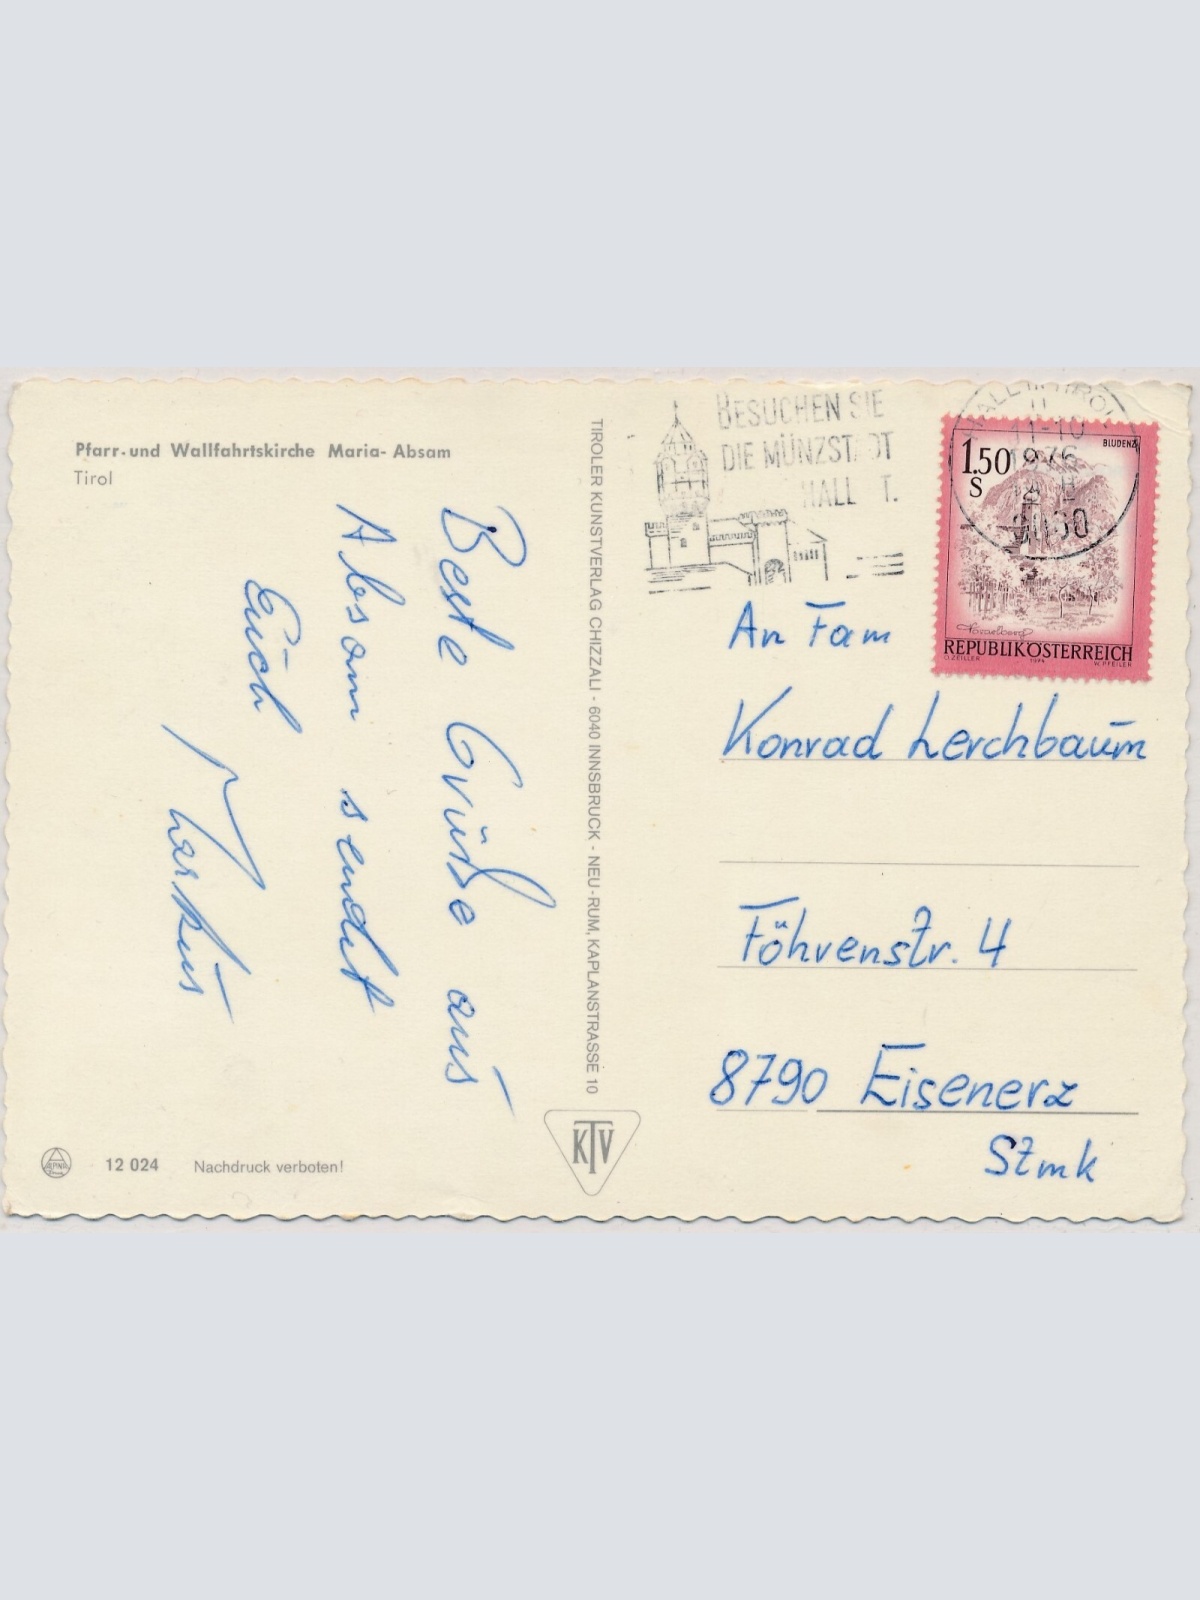 Pfarr- und Wallfahrtskirche Maria- Absam
Tirol
Beste Grüße aus
Absam sendet
Euch
Markus
12 024 Nachdruck verboten!
TIROLER KUNSTVERLAG CHIZZALI - 6040 INNSBRUCK - NEU-RUM, KAPLANSTRASSE 10
KTV
BESUCHEN SIE
DIE MÜNZSTADT
HALL T.
HALL IN TIROL
11-10
1976
1.50
S
BLUDENZ
Vorarlberg
REPUBLIK ÖSTERREICH
O. ZEILLER 1974 W. PFEILER
An Fam
Konrad Lerchbaum
Föhrenstr. 4
8790 Eisenerz
Stmk